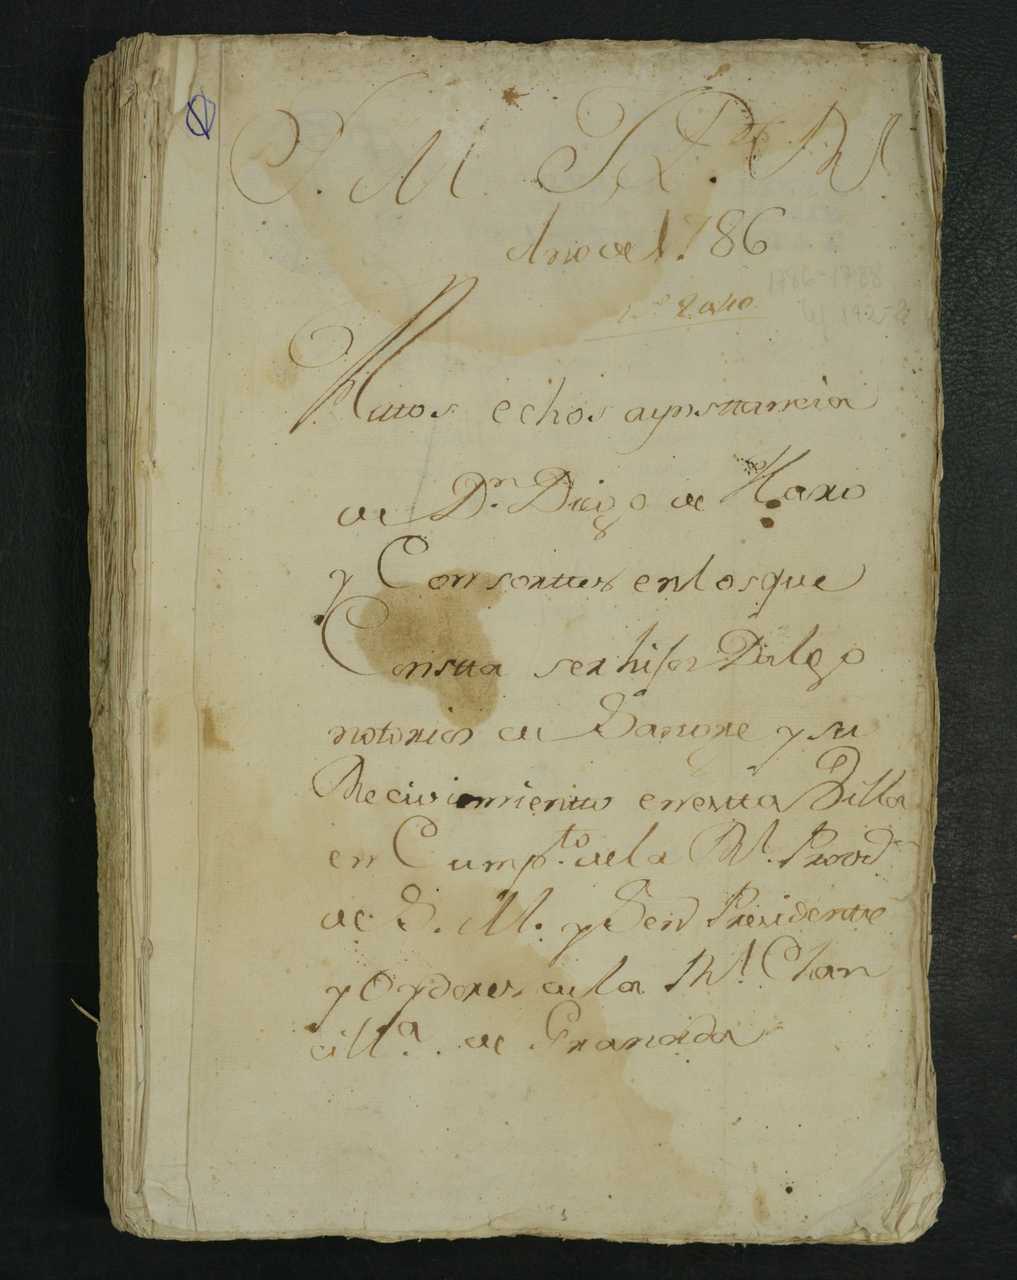 Año de 1.786
1786-1788
Auttos echos aynsttancia
de Dn Diego de Haro
y Consorttes enlosque
Constta ser hijos Dalgo
notorios de Sangre y su
Recivimientto enestta Billa
en Cumpto. dela Rl. Provn
de S. M. y Sen Presidentte
y Oydores dela Rl. Chan
cilla. de Granada